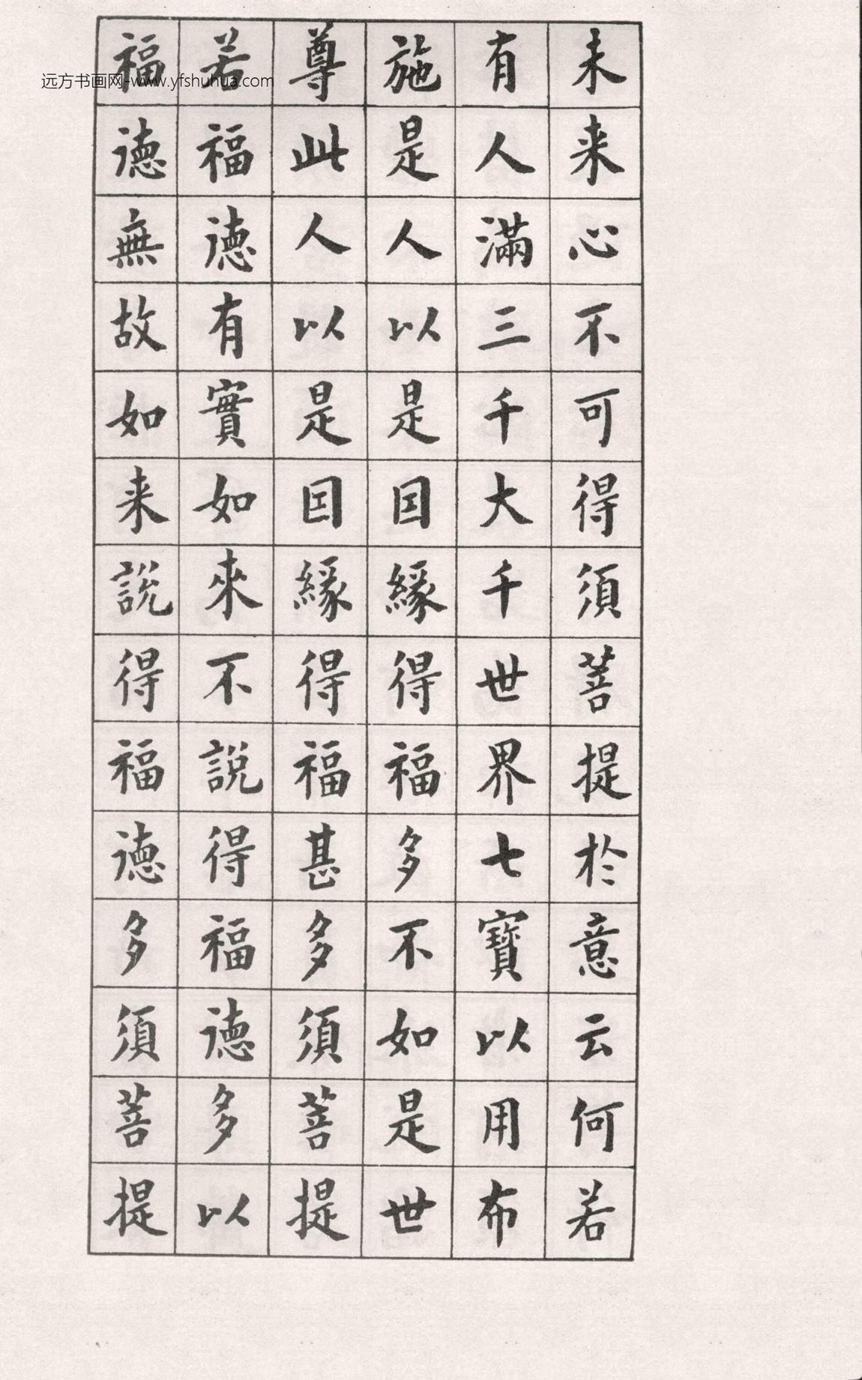 未来心不可得須菩提於意云何若
有人滿三千大千世界七寶以用布
施是人以是因緣得福多不如是世
尊此人以是因緣得福甚多須菩提
若福德有實如來不說得福德多以
福德無故如来說得福德多須菩提
远方书画网-www.yfshuhua.com